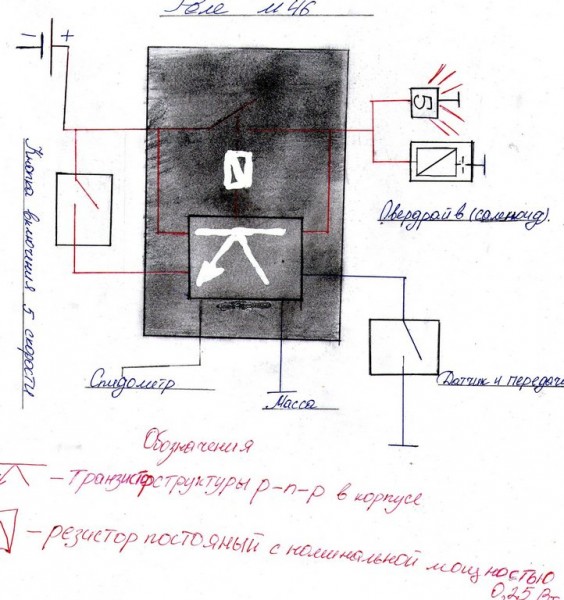 Реле М46
+
–
5
Овердрайв (соленоид).
Кнопка включения 5 скорости
Спидометр
Масса
Датчик 4 передачи
Обозначения
– транзистор структуры p-n-p в корпусе
– резистор постояный с номинальной мощностью
0,25 Вт